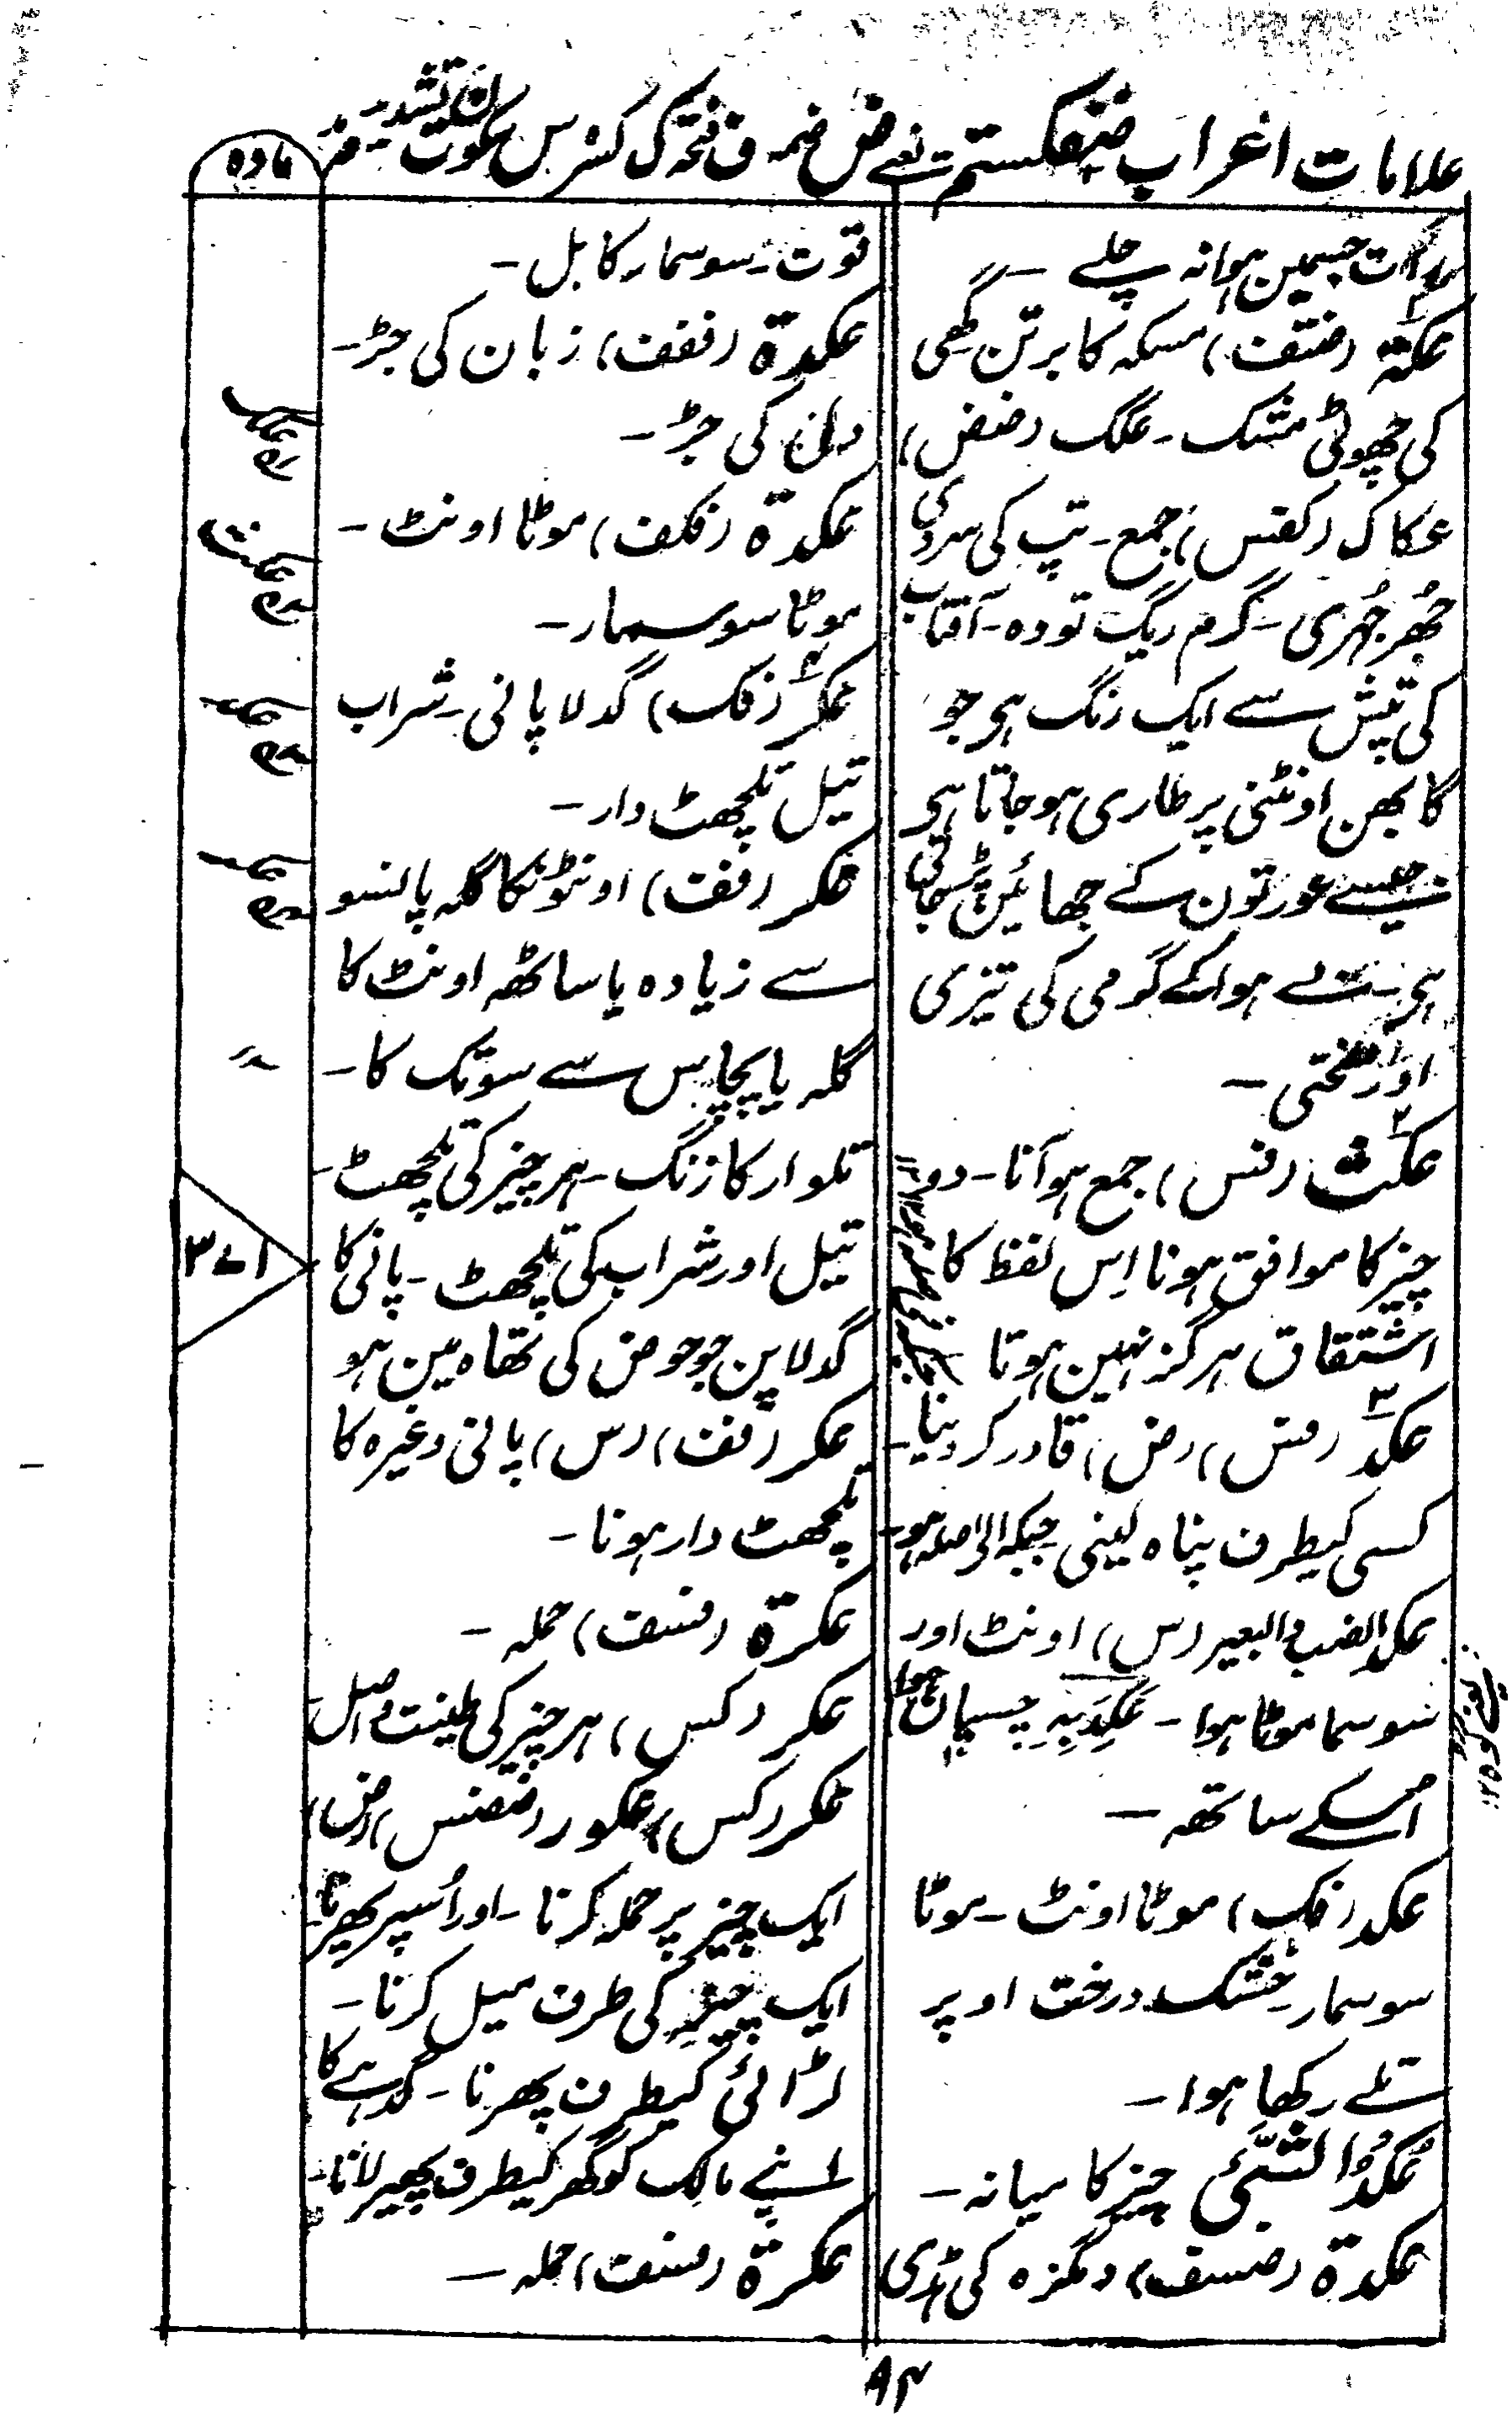 علامات اعراب ضفکستم نعنے ض ضمہ ف فتحہ ک کسرہ س سکون ت تشدید م مد
مادہ
رات جسمین ہوا نہ چلے ــ
عکۃ (ضتف) مسکہ کا برتن گھی
کی چھوٹی مشک ـ عکک (ضفض)
عکاک (کفس) جمع ـ تپ کی سردی
جُھرجُھری ـ گرم ریگ تودہ ـ آفتاب
کی تپش سے ایک رنگ ہی جو
گابھن اونٹنی پر طاری ہوجاتا ہی
جیسے عورتون کے جھائین پڑ جاتی
ہی ـ بے ہوا کے گرمی کی تیزی
اور سختی ـ
عکث (فس) جمع ہو آنا ـ دو
چیز کا موافق ہونا اِس لفظ کا
اشتقاق ہرگز نہین ہوتا
عکد (فس) (ض) قادر کر دینا ـ
کسی کیطرف پناہ لینی جبکہ الی صلہ ہو ـ
عکد الضب والبعیر (س) اونٹ اور
سوسما موٹا ہوا ـ عَکِدَبِہِ چسپان ہوا
اسکے ساتھ ــ
عکد (فک) موٹا اونٹ ـ موٹا
سوسمار ـ خشک درخت اوپر
تلے رکھا ہوا ـ
عُکدُ الشئی چیز کا میانہ ـ
عکدۃ (ضسف) دمگزہ کی ہڈی
قوت ـ سوسمار کا بل ـ
عکدۃ (ففف) زبان کی جڑ ـ
دل کی جڑ ـ
عکدۃ (فکف) موٹا اونٹ ـ
موٹا سوسمار ـ
عکر (فک) گدلا پانی ـ شراب
تیل تلچھٹ دار ـ
عکر (فف) اونٹونکا گلہ پانسو
سے زیادہ یا ساٹھہ اونٹ کا
گلہ یا پچاس سے سو تک کا ـ
تلوار کا زنگ ـ ہر چیز کی تلچھٹ ـ
تیل اور شراب کی تلچھٹ ـ پانی کا
گدلا پن جو حوض کی تھاہ مین ہو
عکر (فف) (س) پانی وغیرہ کا
تلچھٹ دار ہونا ـ
عکرۃ (فسف) حملہ ـ
عکر (کس) ہر چیز کی طینت و اصل ـ
عکر (کس) عکور (ضضس) (ض)
ایک چیز پر حملہ کرنا ـ اور اُسپر پھرنا ـ
ایک چیز کی طرف میل کرنا ـ
لڑائی کیطرف پھرنا ـ گدہے کا
اپنے مالک کو گھر کیطرف پھیر لانا ـ
عکرۃ (فسف) حملہ ــ
۳۷۱
۸۴